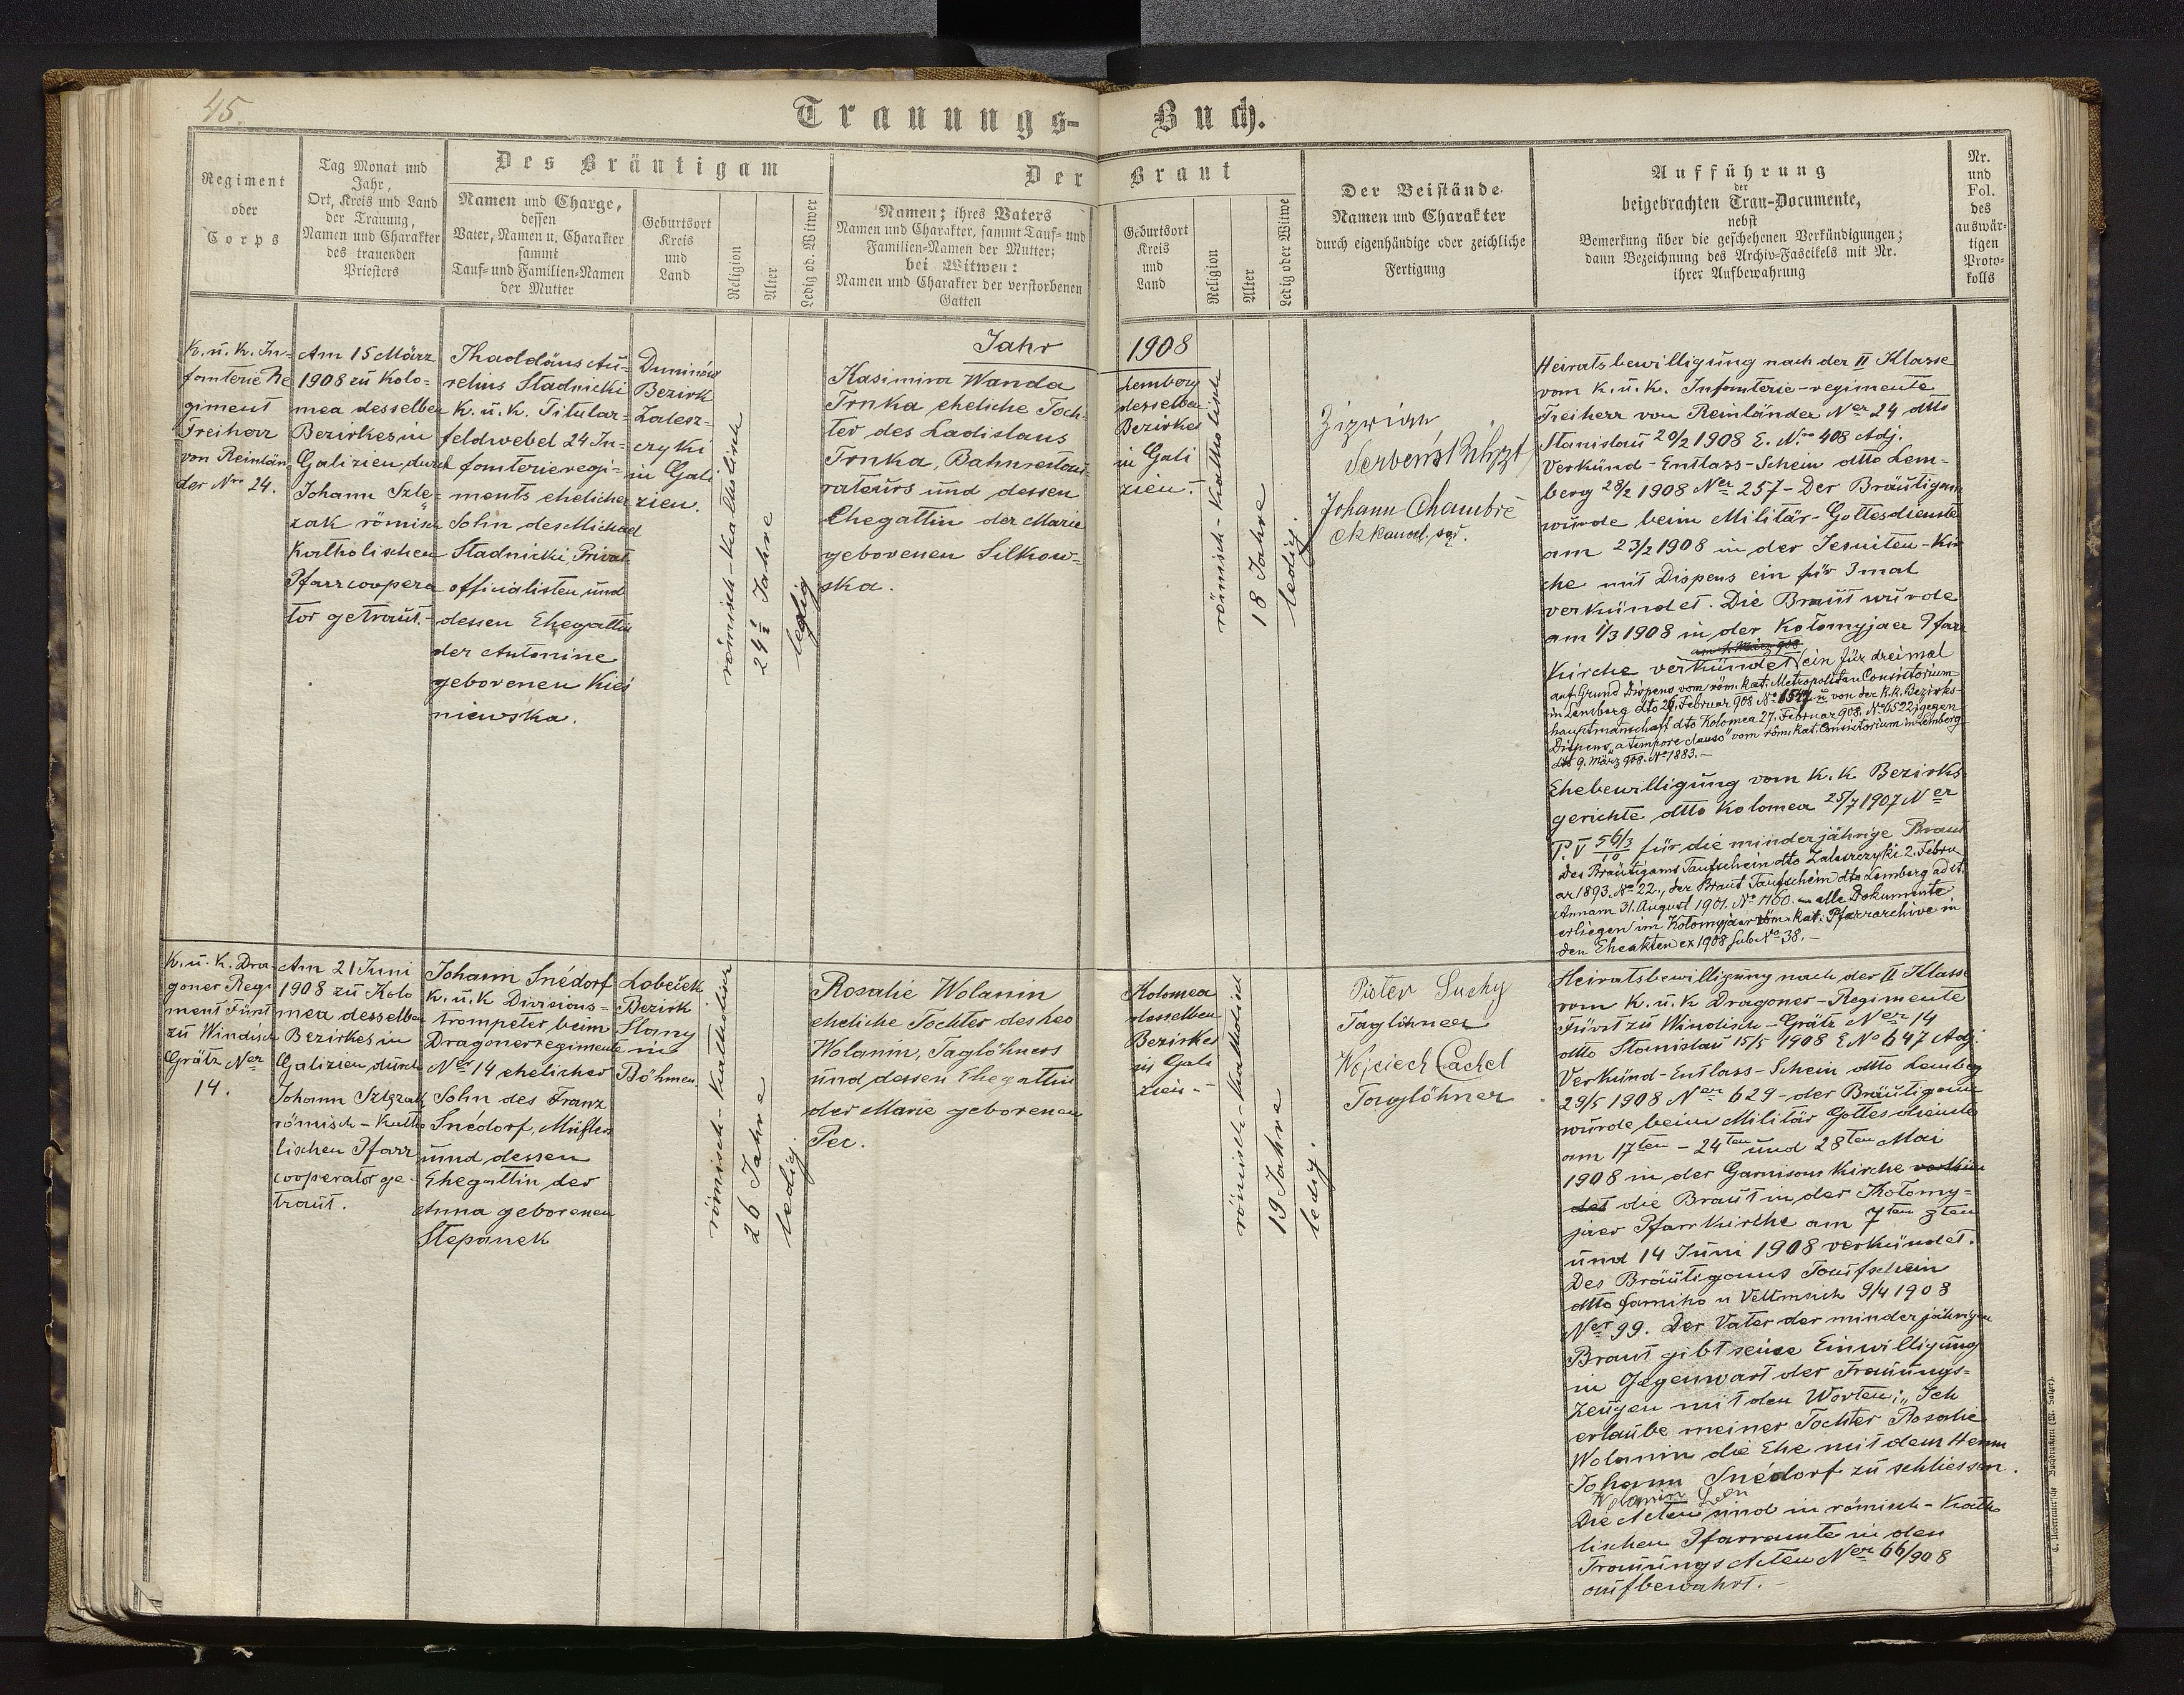 45.
Trauungs-Buch.
Regiment
oder
Corps
Tag Monat und
Jahr,
Ort, Kreis und Land
der Trauung,
Namen und Charakter
des trauenden
Priesters
Des Bräutigam
Namen und Charge,
dessen
Vater, Namen u. Charakter
sammt
Tauf- und Familien-Namen
der Mutter
Geburtsort
Kreis
und
Land
Religion
Alter
Ledig od. Witwer
Der Braut
Namen; ihres Vaters
Namen und Charakter, sammt Tauf- und
Familien-Namen der Mutter;
bei Witwen:
Namen und Charakter der verstorbenen
Gatten
Geburtsort
Kreis
und
Land
Religion
Alter
Ledig oder Witwe
Der Beistände
Namen und Charakter
durch eigenhändige oder zeichliche
Fertigung
Aufführung
der
beigebrachten Trau-Documente,
nebst
Bemerkung über die geschehenen Verkündigungen;
dann Bezeichnung des Archiv-Fascikels mit Nr.
ihrer Aufbewahrung
Nr.
und
Fol.
des
auswär-
tigen
Proto-
kolls
Jahr 1908
K. u. K. In-
fanterie Re
giment
Freiherr
von Reinlän
der Nro 24.
Am 15 März
1908 zu Kolo-
mea desselben
Bezirkes in
Galizien, durch
Johann Szle-
zak römisch
Katholischen
Pfarrcoopera
tor getraut.-
Thaddäus Au-
relius Stadnicki
K. u. K. Titular-
feldwebel 24 In-
fanterieregi-
ments ehelicher
Sohn des Michael
Stadnicki, Privat
officialisten und
dessen Ehegattin
der Antonine
geborenen Kieś
niewska.
Duninów
Bezirk
Zalesz-
czyki
in Gali
zien.
römisch-katholisch
24½ Jahre
ledig
Kasimira Wanda
Trnka eheliche Toch-
ter des Ladislaus
Trnka, Bahnrestau-
rateurs und dessen
Ehegattin der Marie
geborenen Silkow-
ska.
Lemberg
desselben
Bezirkes
in Gali
zien.-
römisch-katholisch
18 Jahre
ledig.
Johann Chambrè
Heiratsbewilligung nach der II Klasse
vom K. u. K. Infanterie-regimente
Freiherr von Reinländer Ner 24 dtto
Stanislau 20/2 1908 E. Nro 408 Adj.
Verkünd-Entlass-Schein dtto Lem-
berg 28/2 1908 Ner 257 - Der Bräutigam
wurde beim Militär-Gottesdienste
am 23/2 1908 in der Jesuiten-Kir
che mit Dispens ein für 3 mal
verkündet. Die Braut wurde
am 1/3 1908 in der Kołomyjaer Pfarr
am 1. März 908
Kirche verkündet ein für dreimal
auf Grund Dispens vom röm. kat. Metropolitan Consistorium
in Lemberg dto 26. Februar 908 No 1544 u von der K.K. Bezirks-
hauptmanschaft dto Kolomea 27. Februar 908. No 6522, gegen
Dispens „a tempore clauso" vom röm. kat. Consistorium in Lemberg
dto 9. März 908. No 1883.-
Ehebewilligung vom K. K. Bezirks
gerichte dtto Kolomea 25/7 1907 Ner
P. V 56/3/10 für die minderjährige Braut
Des Bräutigams Taufschein dto Zaleszczyki 2. Febru
ar 1893. No 22., der Braut Taufschein dto Lemberg ad St.
Annam 31. August 1901. No 1160. - alle Dokumente
erliegen im Kołomyjaer röm. kat. Pfarrarchive in
den Eheakten ex 1908 sub No 38.-
K. u. K. Dra
goner Regi
ment Fürst
zu Windisch
Grätz Ner
14.
Am 21 Juni
1908 zu Kolo
mea desselben
Bezirkes in
Galizien, durch
Johann Szlezak
römisch-katho
lischen Pfarr
cooperator ge-
traut.
Johann Snédorf
K. u. K Divisions-
trompeter beim
Dragonerregimente
Nro 14 ehelicher
Sohn des Franz
Snédorf, Müllers
und dessen
Ehegattin der
Anna geborenen
Stepánek
Lobeček
Bezirk
Slany
in
Böhmen.
römisch-katholisch
26 Jahre
ledig.
Rosalie Wolanin
eheliche Tochter des Leo
Wolanin, Taglöhners
und dessen Ehegattin
der Marie geborenen
Pec.
Kolomea
desselben
Bezirkes
in Gali
zien.-
römisch-katholisch
19 Jahre
ledig.
Pioter Suchy
Taglöhner
Wojciech Cachel
Taglöhner
Heiratsbewilligung nach der II Klasse
vom K. u. K Dragoner-Regimente
Fürst zu Windisch-Grätz Ner 14
dtto Stanislau 15/5 1908 E No 647 Adj.
Verkünd-Entlass-Schein dtto Lemberg
29/5 1908 Ner 629 - der Bräutigam
wurde beim Militär Gottesdienste
am 17ten - 24ten und 28ten Mai
1908 in der Garnisons Kirche verkün
det die Braut in der Kołomy-
jaer Pfarrkirche am 7ten 8ten
und 14 Juni 1908 verkündet.
Des Bräutigams Taufschein
9/4 1908
Ner 99. Der Vater der minderjährigen
Braut gibt seine Einwilligung
in Gegenwart der Trauungs-
zeugen mit den Worten: „Ich
erlaube meiner Tochter Rosalie
Wolanin die Ehe mit dem Herrn
Johann Snédorf zu schliessen.
Wolanin Leon
Die Acten sind in römisch-katho
lischen Pfarramte in den
Trauungs Acten Ner 66/908
aufbewahrt.-